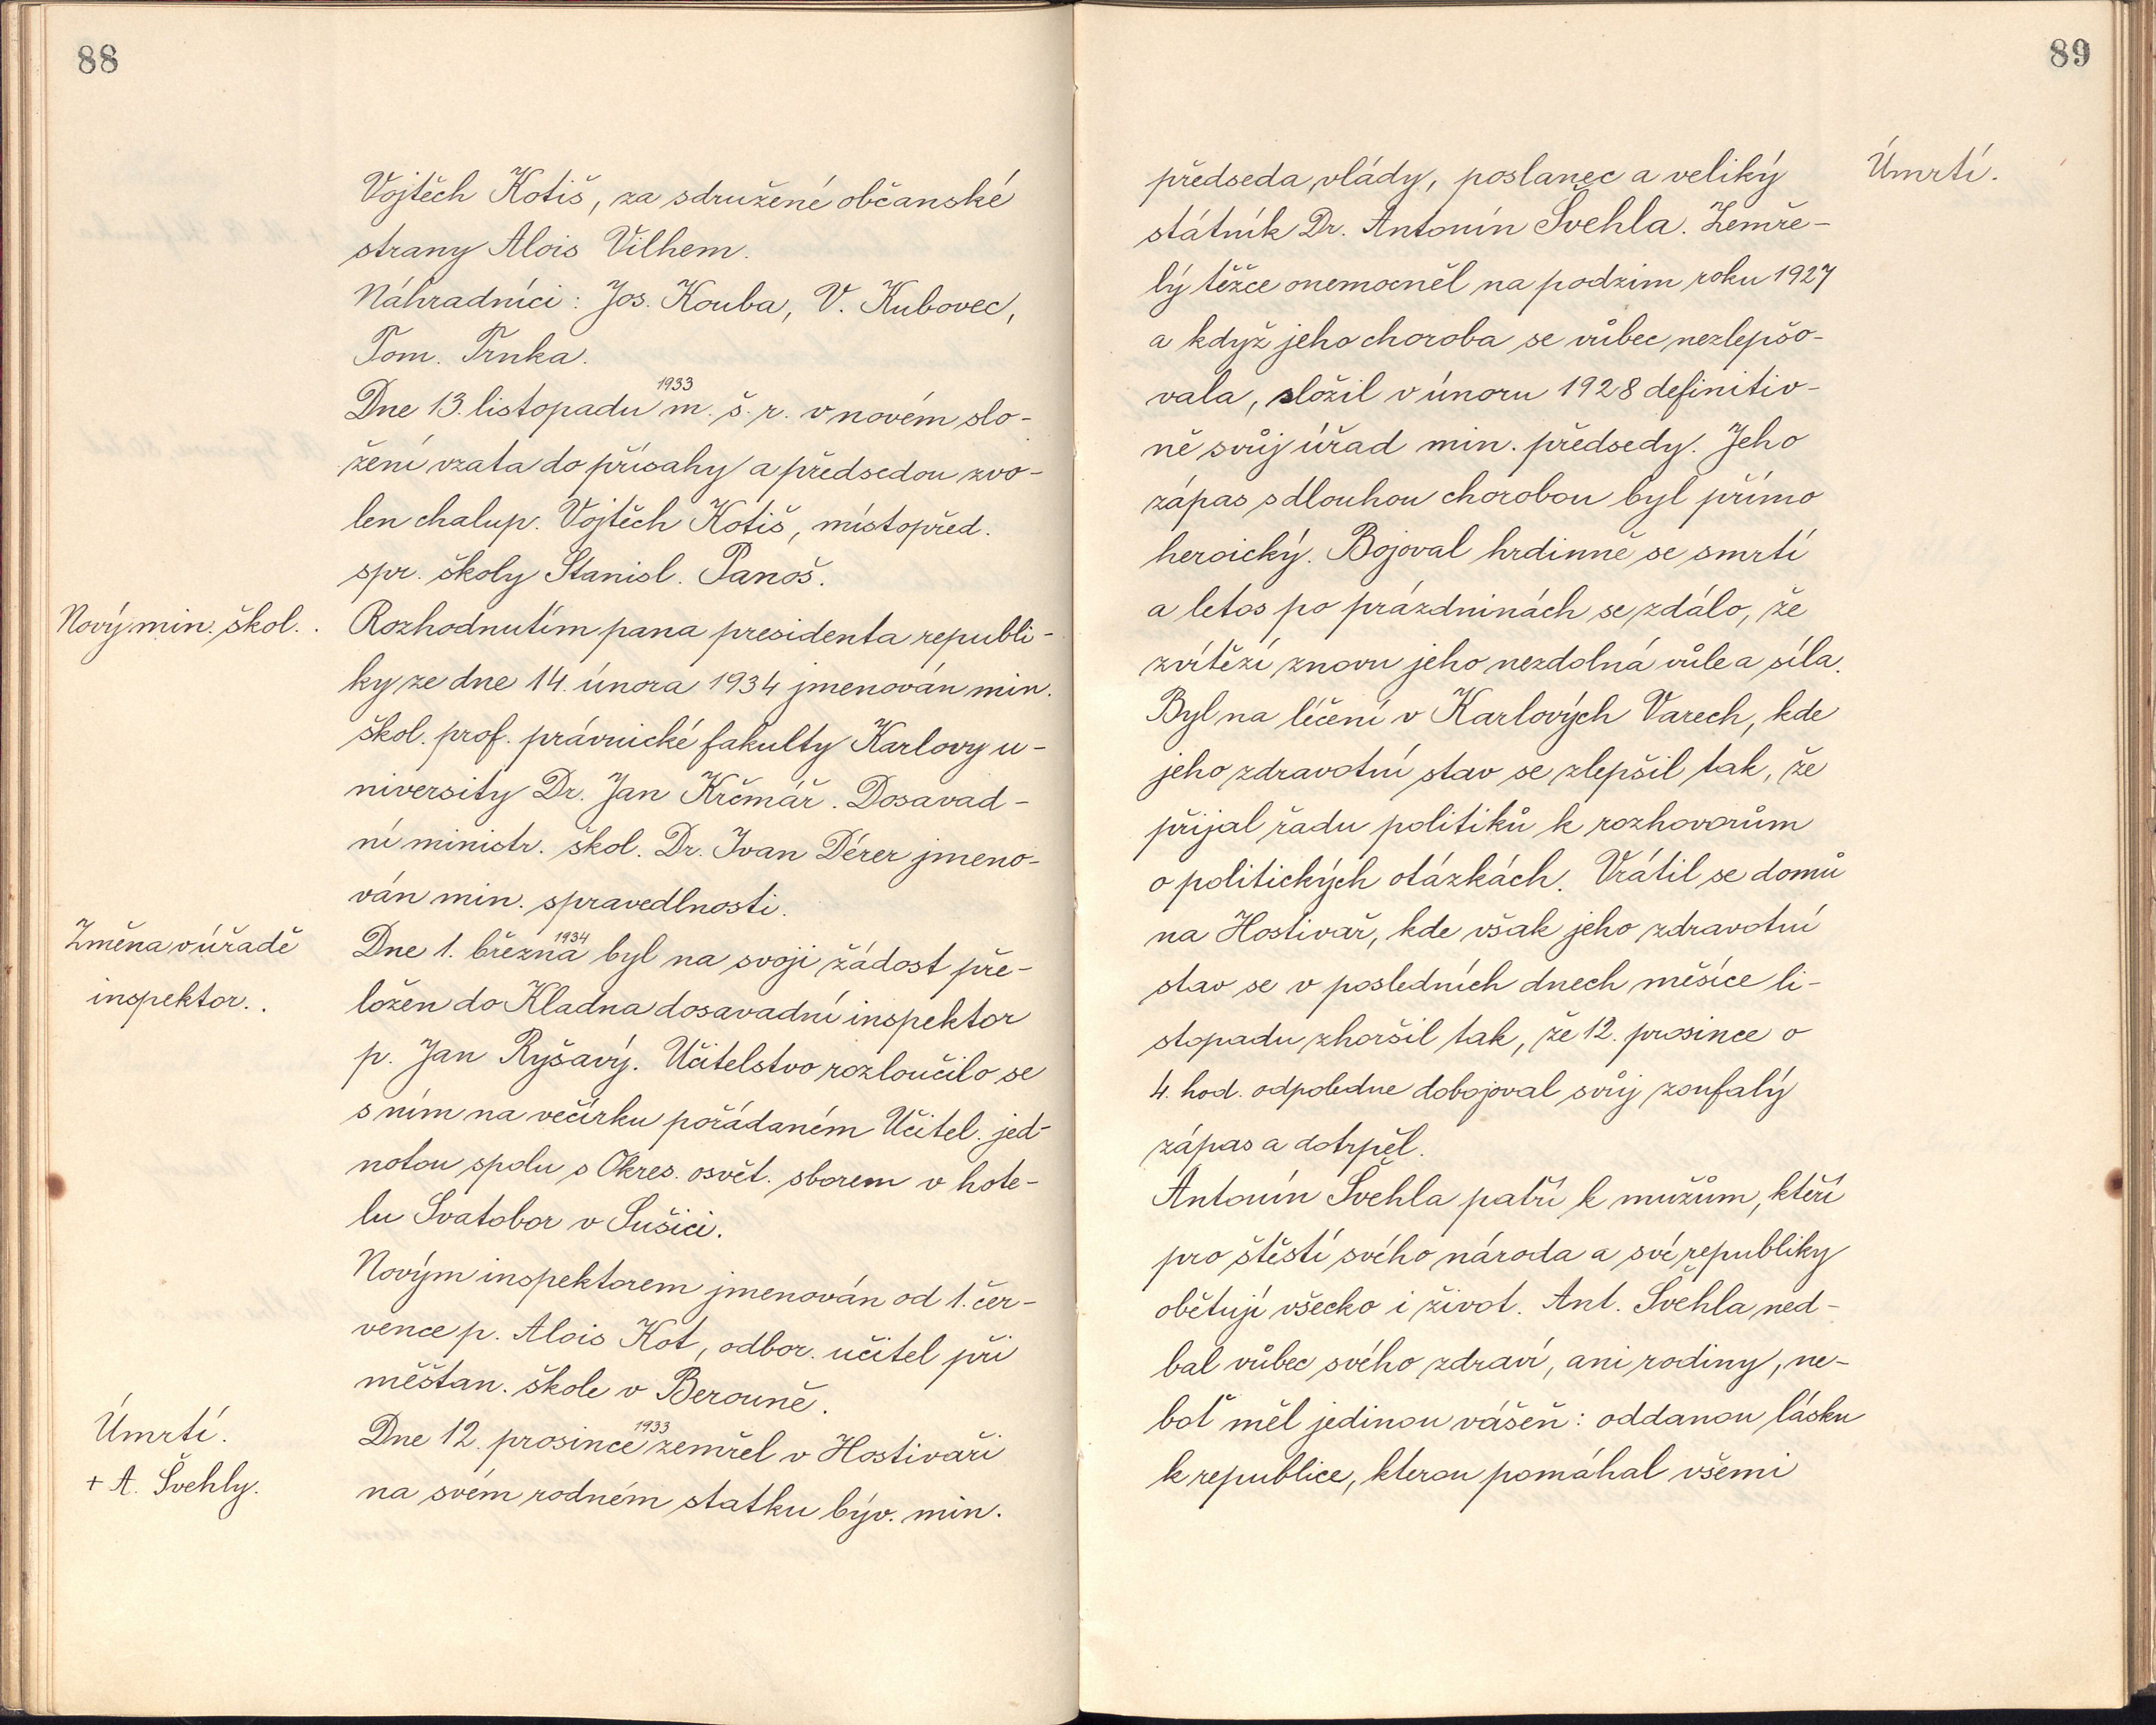 88
Vojtěch Kotiš, za sdružené občanské
strany Alois Vilhem.
Náhradníci: Jos. Kouba, V. Kubovec,
Tom. Trnka.
1933
Dne 13. listopadu m. š. r. v novém slo-
žení vzata do přísahy a předsedou zvo-
len chalup. Vojtěch Kotiš, místopřed.
spr. školy Stanisl. Panoš.
Nový min. škol. .
Rozhodnutím pana presidenta republi-
ky ze dne 14. února 1934 jmenován min.
škol. prof. právnické fakulty Karlovy u-
niversity Dr. Jan Krčmář. Dosavad-
ní ministr. škol. Dr. Ivan Dérer jmeno-
ván min. spravedlnosti.
Změna v úřadě
inspektor. .
1934
Dne 1. března byl na svoji žádost pře-
ložen do Kladna dosavadní inspektor
p. Jan Ryšavý. Učitelstvo rozloučilo se
s ním na večírku pořádaném Učitel. jed-
notou spolu s Okres. osvět. sborem v hote-
lu Svatobor v Sušici.
Novým inspektorem jmenován od 1. čer-
vence p. Alois Kot, odbor. učitel při
měšťan. škole v Berouně.
Úmrtí.
+ A. Švehly.
1933
Dne 12. prosince zemřel v Hostivaři
na svém rodném statku býv. min.
89
Úmrtí.
předseda vlády, poslanec a veliký
státník Dr. Antonín Švehla. Zemře-
lý těžce onemocněl na podzim roku 1927
a když jeho choroba se vůbec nezlepšo-
vala, složil v únoru 1928 definitiv-
ně svůj úřad min. předsedy. Jeho
zápas s dlouhou chorobou byl přímo
heroický. Bojoval hrdinně se smrtí
a letos po prázdninách se zdálo, že
zvítězí znovu jeho nezdolná vůle a síla.
Byl na léčení v Karlových Varech, kde
jeho zdravotní stav se zlepšil tak, že
přijal řadu politiků k rozhovorům
o politických otázkách. Vrátil se domů
na Hostivař, kde však jeho zdravotní
stav se v posledních dnech měsíce li-
stopadu zhoršil tak, že 12. prosince o
4. hod. odpoledne dobojoval svůj zoufalý
zápas a dotrpěl.
Antonín Švehla patří k mužům, kteří
pro štěstí svého národa a své republiky
obětují všecko i život. Ant. Švehla ned-
bal vůbec svého zdraví, ani rodiny, ne-
boť měl jedinou vášeň: oddanou lásku
k republice, kterou pomáhal všemi